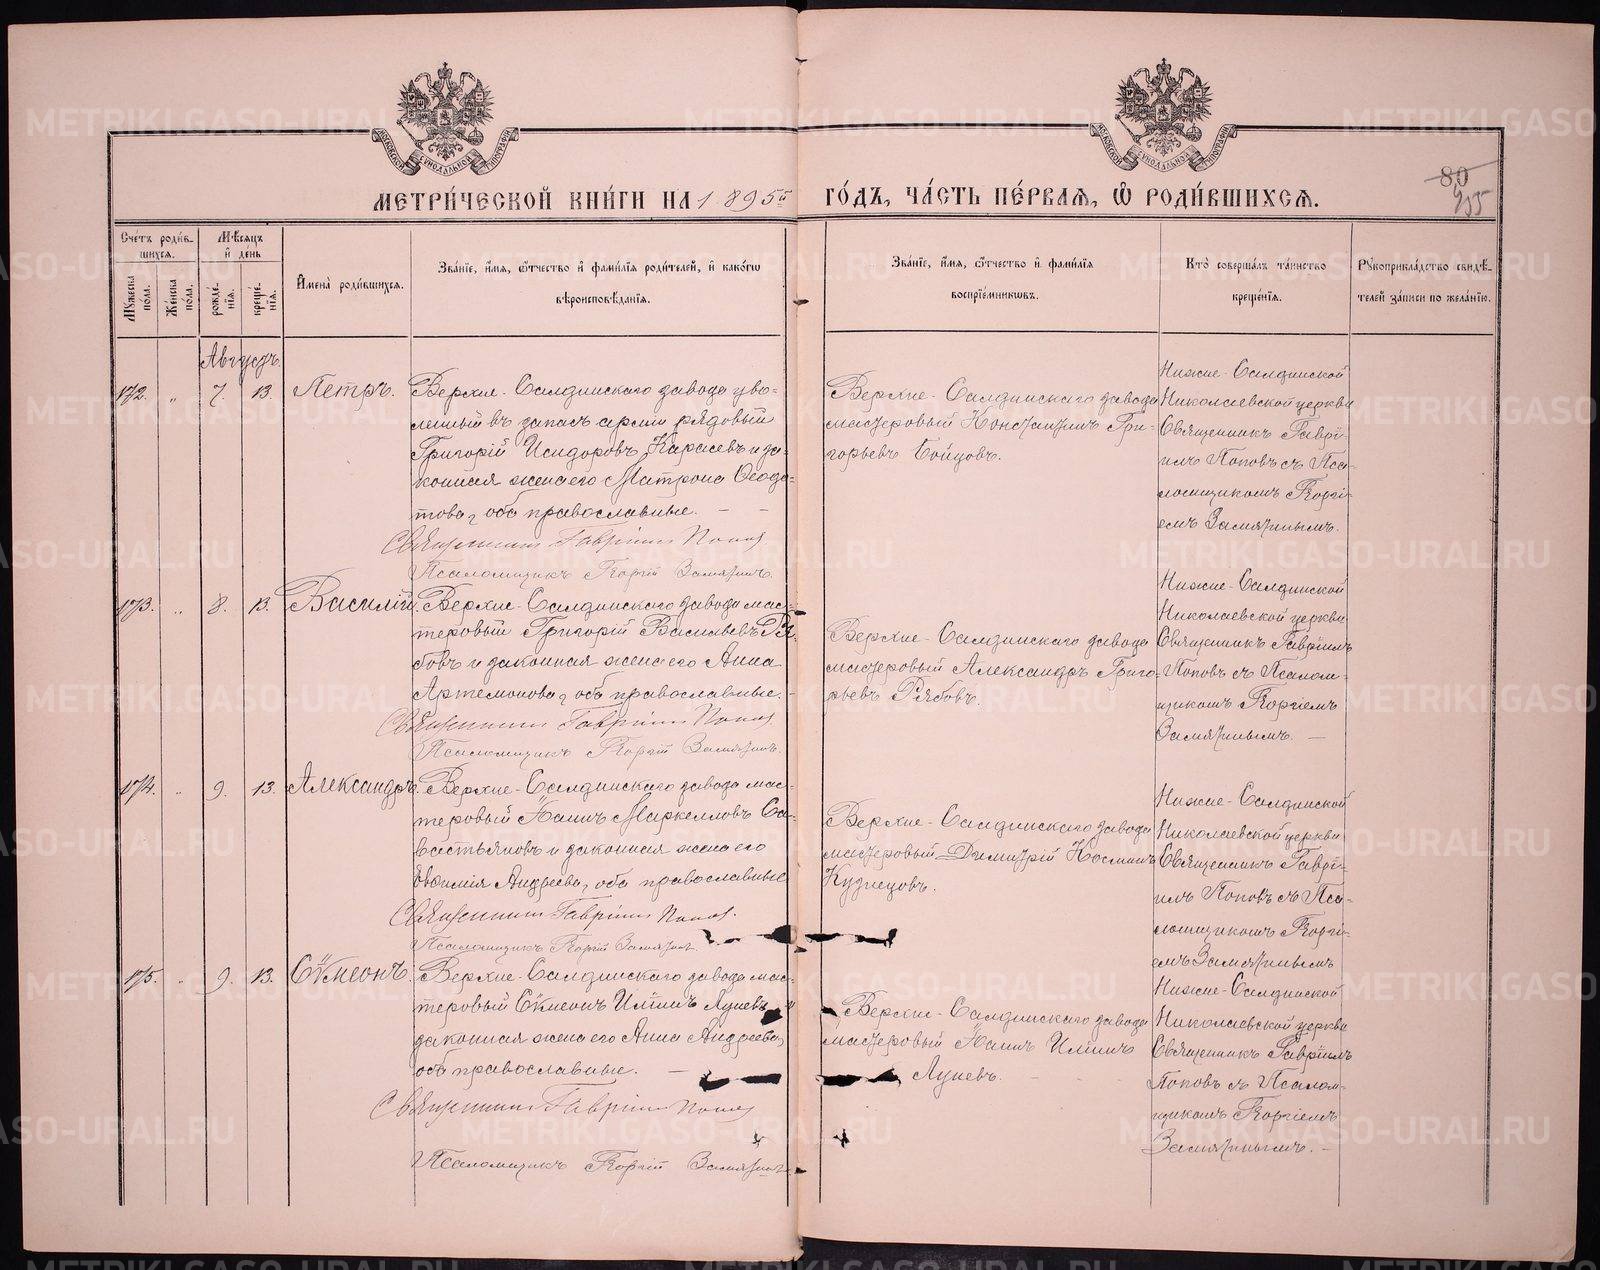 МЕТРИ́ЧЕСКОЙ КНИ́ГИ НА 1895й ГО́ДЪ, ЧА́СТЬ ПЕ́РВАЯ, Ѽ РОДИ́ВШИХСѦ.
80
255
Сче́тъ роди́в-
шихсѧ.
Му́жеска
пола.
Же́нска
пола.
Мѣ́сѧцъ
и҆ де́нь
рожде́-
нїѧ.
креще́-
нїѧ.
И҆мена̀ роди́вшихсѧ.
Зва́нїе, и҆́мѧ, ѻ҆́тчество и҆ фами́лїѧ роди́телей, и҆ како́гѡ
вѣроисповѣ́данїѧ.
Зва́нїе, и҆́мѧ, ѻ҆́тчество и҆ фами́лїѧ
воспрїе́мникѡвъ.
Кто̀ соверша́лъ та́инство
креще́нїѧ.
Рꙋкоприкла́дство свидѣ́-
телей за́писи по жела́нїю.
Августъ.
172. „ 7. 13. Петръ.
Верхне-Салдинскаго завода уво-
ленный въ запасъ армiи рядовый
Григорiй Исидоровъ Карасевъ и за-
конная жена его Матрона Ѳеодо-
това, оба православные. — —
Священникъ Гаврiилъ Попов
Псаломщикъ Георгiй Замятнинъ.
Верхне-Салдинскаго завода
мастеровый Константинъ Гри-
горьевъ Бойцовъ.
Нижне-Салдинской
Николаевской церкви
Священникъ Гаврi-
илъ Поповъ съ Пса-
ломщикомъ Георгi-
емъ Замятнинымъ.
173. „ 8. 13. Василiй.
Верхне-Салдинскаго завода мас-
теровый Григорiй Васильевъ Ря-
бовъ и законная жена его Анна
Артемонова, оба православные. -
Священникъ Гаврiилъ Попов
Псаломщикъ Георгiй Замятнинъ.
Верхне-Салдинскаго завода
мастеровый Александръ Григо-
рьевъ Рябовъ.
Нижне-Салдинской
Николаевской церкви
Священникъ Гаврiилъ
Поповъ съ Псалом-
щикомъ Георгiемъ
Замятнинымъ. —
174. „ 9. 13. Александръ.
Верхне-Салдинскаго завода мас-
теровый Iоаннъ Маркелловъ Са-
вастьяновъ и законная жена его
Евѳимiя Андреева, оба православные
Священникъ Гаврiилъ Попов.
Псаломщикъ Георгiй Замятнинъ
Верхне-Салдинскаго завода
мастеровый Димитрiй Косминъ
Кузнецовъ.
Нижне-Салдинской
Николаевской церкви
Священникъ Гаврi-
илъ Поповъ съ Пса-
ломщикомъ Георгi-
емъ Замятнинымъ
175. „ 9. 13. Сѵмеонъ.
Верхне-Салдинскаго завода мас-
теровый Сѵмеонъ Илiинъ Луневъ и
законная жена его Анна Андреева,
оба православные. —
Священникъ Гаврiилъ Попов
Псаломщикъ Георгiй Замятнинъ
Верхне-Салдинскаго завода
мастеровый Iоаннъ Илiинъ
Луневъ.
Нижне-Салдинской
Николаевской церкви
Священникъ Гаврiилъ
Поповъ съ Псалом-
щикомъ Георгiемъ
Замятнинымъ. —
METRIKI.GASO-URAL.RU